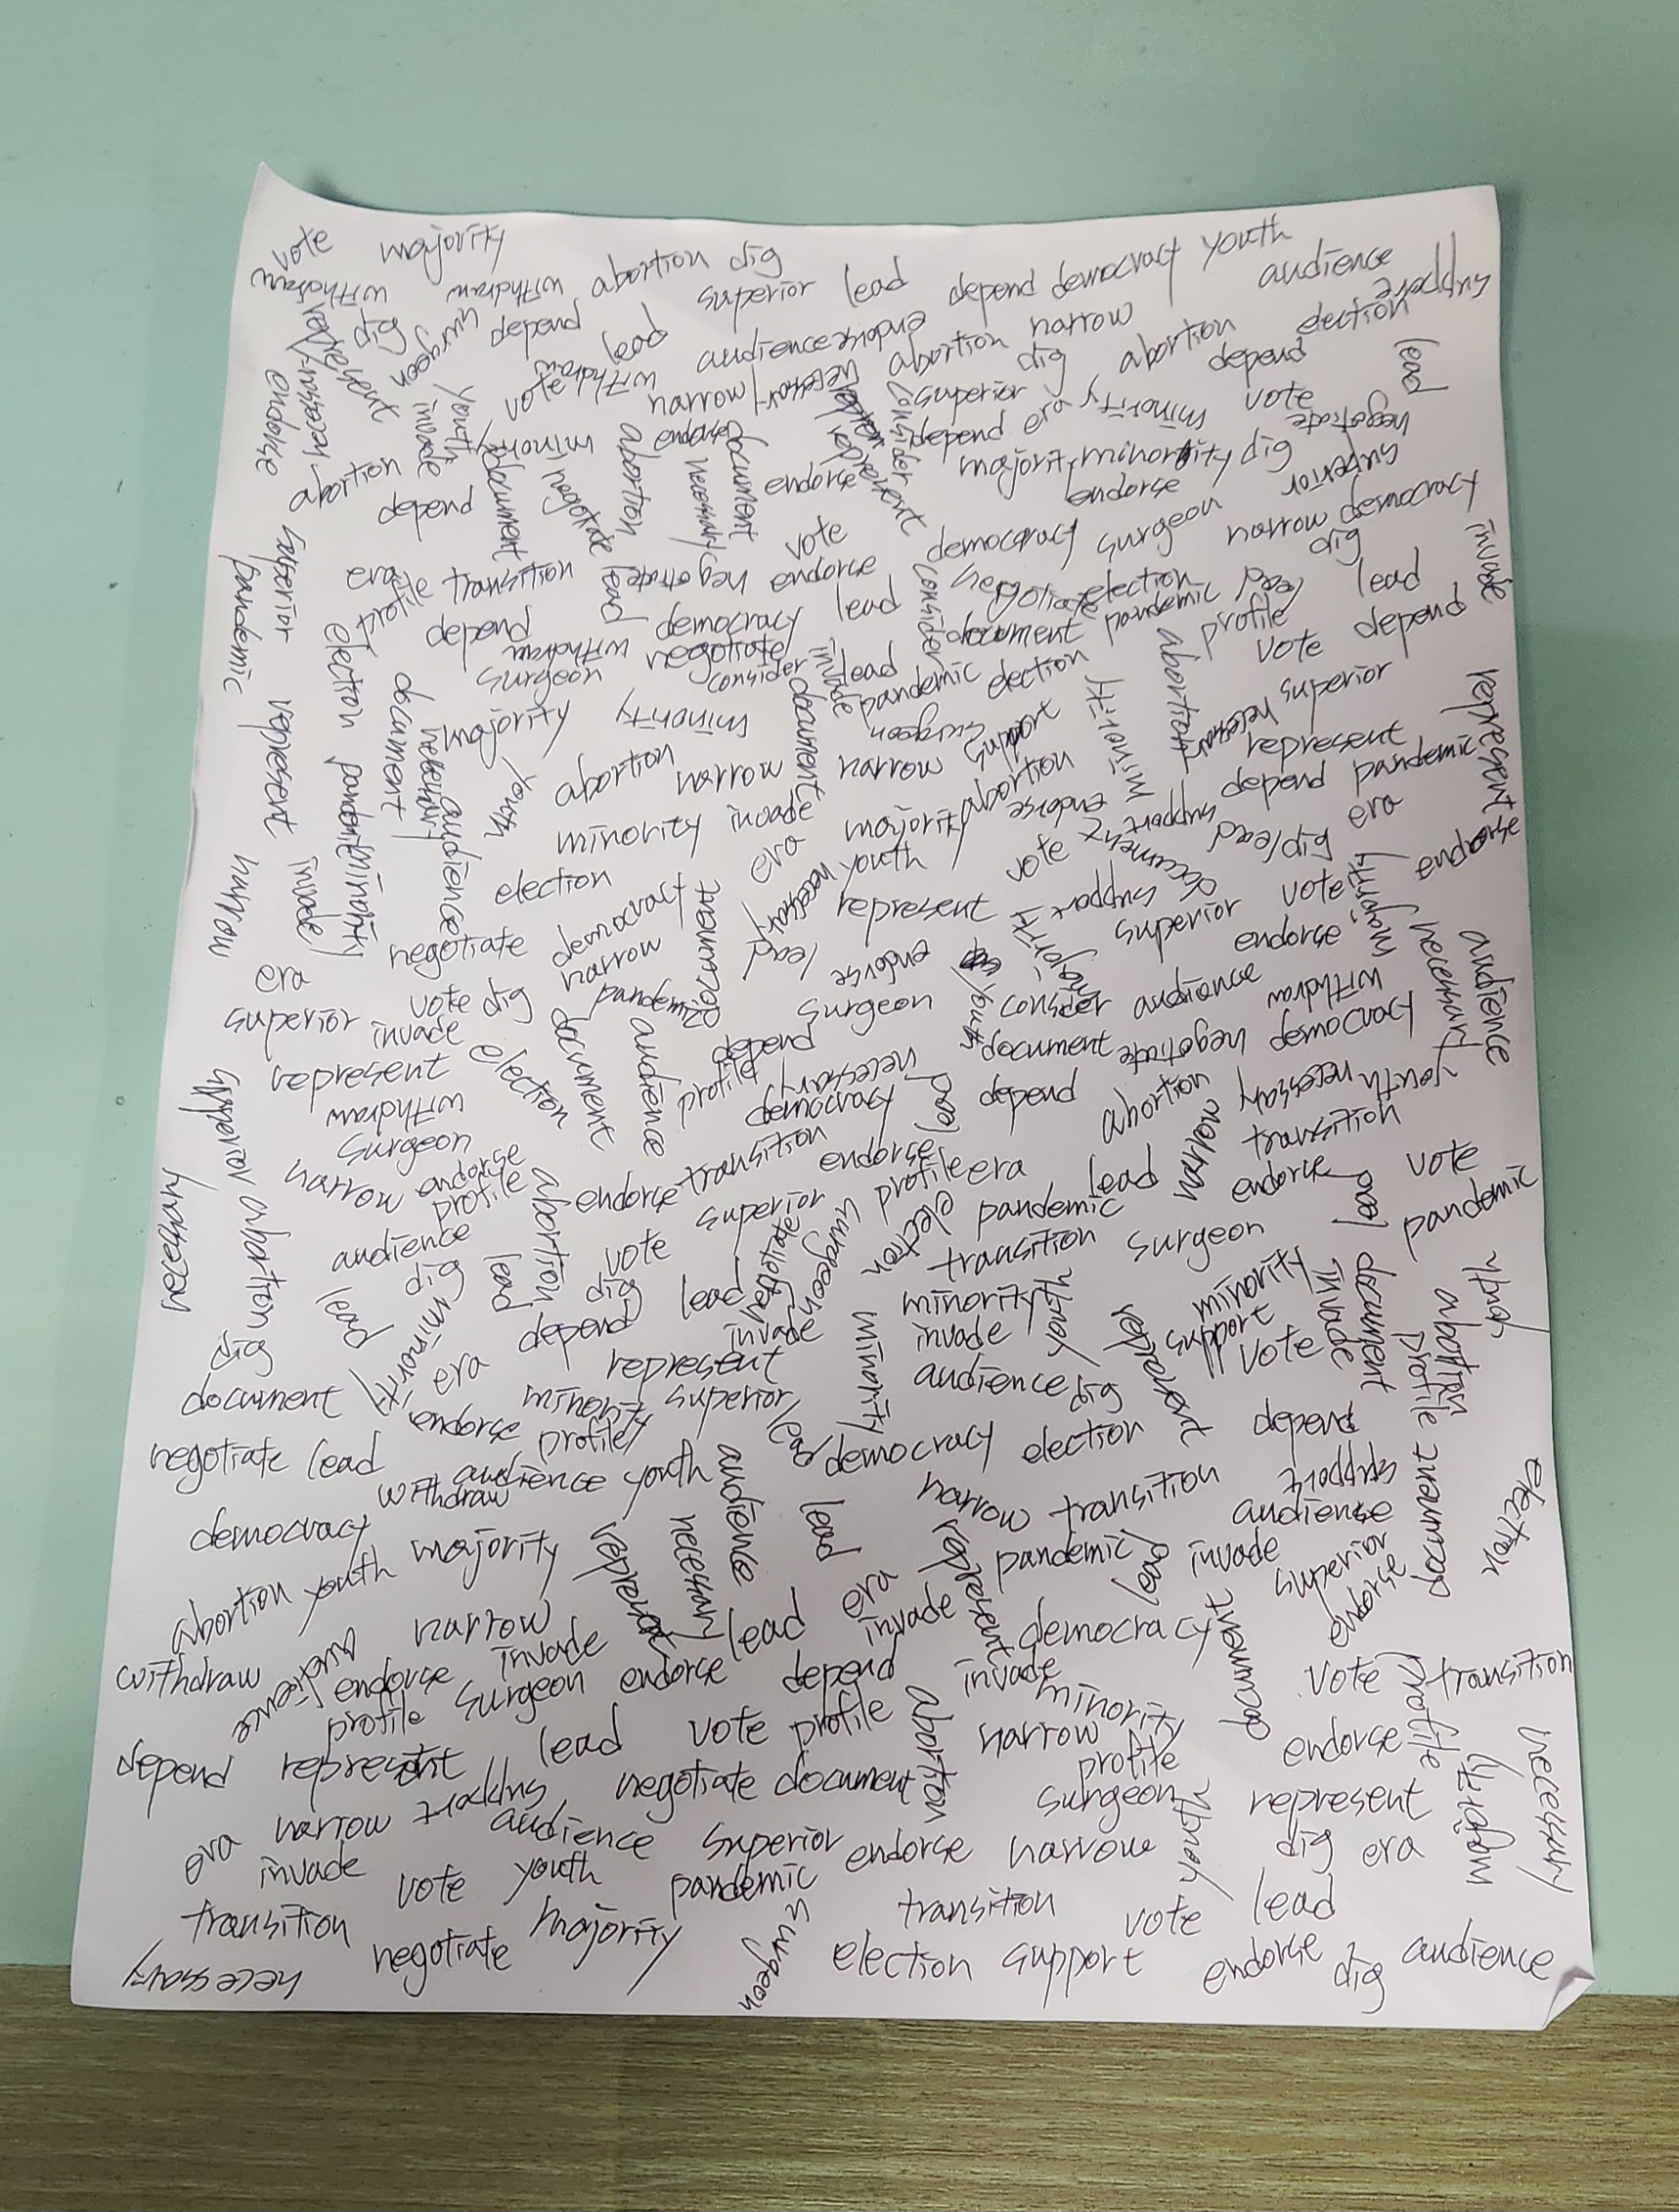 vote majority abortion dig superior lead depend democracy youth audience support
withdraw withdraw withdraw
dig surgeon depend lead audience endorse abortion narrow dig abortion depend election lead
represent necessary endorse youth invade vote withdraw narrow necessary consider superior era minority vote negotiate
abortion depend document minority negotiate abortion endorse necessary document endorse represent depend majority minority dig endorse superior
superior pandemic era transition lead negotiate endorse vote democracy surgeon narrow democracy dig invade
profile depend withdraw democracy lead consider negotiate election pandemic lead profile lead
election surgeon negotiate consider invade lead document vote depend
represent document majority minority document pandemic election abortion superior represent
necessary surgeon support minority necessary represent
pandemic youth abortion narrow narrow abortion depend pandemic
minority audience minority invade majority endorse support era
narrow invade election era youth vote document lead dig endorse
negotiate democracy document necessary represent support vote majority
era narrow lead endorse majority superior endorse necessary audience
superior vote dig pandemic surgeon youth consider audience withdraw
invade election document audience depend document negotiate democracy
represent profile necessary
withdraw democracy lead depend abortion necessary youth
superior surgeon transition endorse narrow transition
necessary narrow endorse abortion endorse profile era lead endorse lead vote
abortion profile superior election pandemic pandemic
audience lead vote negotiate surgeon transition surgeon
dig lead minority dig lead minority youth minority document youth
dig era depend invade minority invade represent support invade abortion
document represent audience dig vote profile
endorse minority superior lead
negotiate lead profile democracy election depend document
audience youth audience narrow transition support election
withdraw
democracy majority represent necessary lead represent pandemic lead invade audience
abortion youth era superior
narrow invade lead invade democracy document endorse
withdraw audience endorse surgeon endorse depend invade vote profile transition
profile abortion minority
depend represent lead vote profile narrow endorse necessary
narrow support negotiate document profile majority
era audience superior endorse surgeon youth represent
invade narrow dig era
vote youth pandemic
transition majority surgeon transition vote lead
necessary negotiate election support endorse dig audience